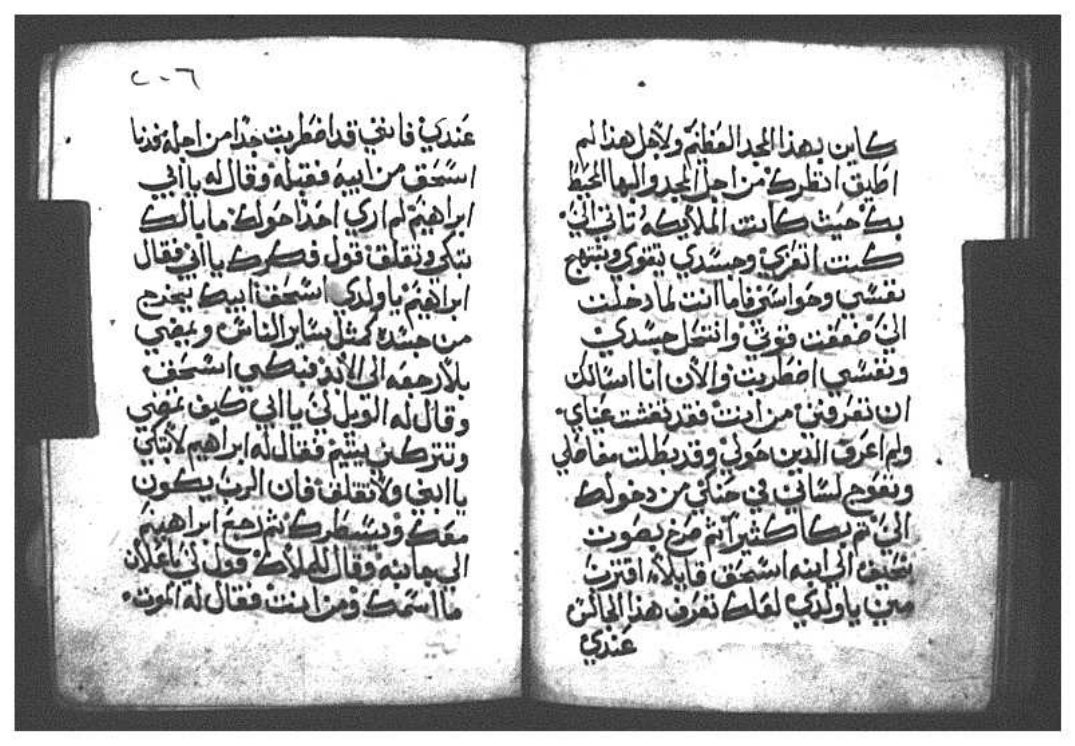 كاين بهذا المجد العظيم ولاجل هذا لم
اطيق انظرك من اجل المجد والبها المحيط
بك حيث كانت الملايكه تاتي الي
كنت اتعزي وجسدي يتقوي ويبتهج
نفسي وحواسي فاما انت لما دخلت
الي ضعفت قوتي وانتحل جسدي
ونفسي اضطربت والان انا اسالك
ان تعرفني من انت فقد عيناي
ولم اعرف الدين حولي وقد بطلت مفاصلي
وتعوج لساني في حنكي من دخولك
الي ثم بكا كثيرا ثم صرخ بصوت
نحيف الي ابنه اسحق قايلا اقترب
مني ياولدي لعلك تعرف هذا الجالس
عندي
٢٠٦
عندي فانني قد اضطربت جدا من اجله فدنا
اسحق من ابيه فقبله وقال له يا ابي
ابراهيم لم اري احدا حولك ما بالك
تبكي وتقلق قول فكرك يا ابي فقال
ابراهيم ياولدي اسحق ابيك يخرج
من جسده كمثل ساير الناس ويمضي
بلا رجعه الي الابد فبكي اسحق
وقال له الويل لي يا ابي كيف تمضي
وتتركني يتيم فقال له ابراهيم لا تبكي
يا ابني ولا تقلق فان الرب يكون
معك ثم رجع ابراهيم
الي جانبه وقال للملاك قول لي
ما اسمك ومن انت فقال له الموت